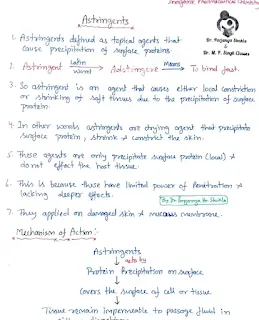 Inorganic Pharmaceutical Chemistry
Astringents
Dr. Puspanga Shukla
&
Dr. M. P. Singh Classes
1. Astringents defined as topical agents that
cause precipitation of surface proteins.
2. Astringent Latin word Adstringere Means To bind fast.
3. So astringent is an agent that causes either local constriction
or shrinking of soft tissues due to the precipitation of surface
protein.
4. In other words astringents are drying agent that precipitate
surface protein, shrink & constrict the skin.
5. These agents are only precipitate surface protein (low) &
do not effect the host tissue.
6. This is because these have limited power of penetration &
lacking deeper effects.
By Dr. Shukla
7. They applied on damaged skin & mucous membrane.
Mechanism of Action:
Astringents
act by
Protein Precipitation on surface
Covers the surface of cell or tissue
Tissue remain impermeable to passage fluid in